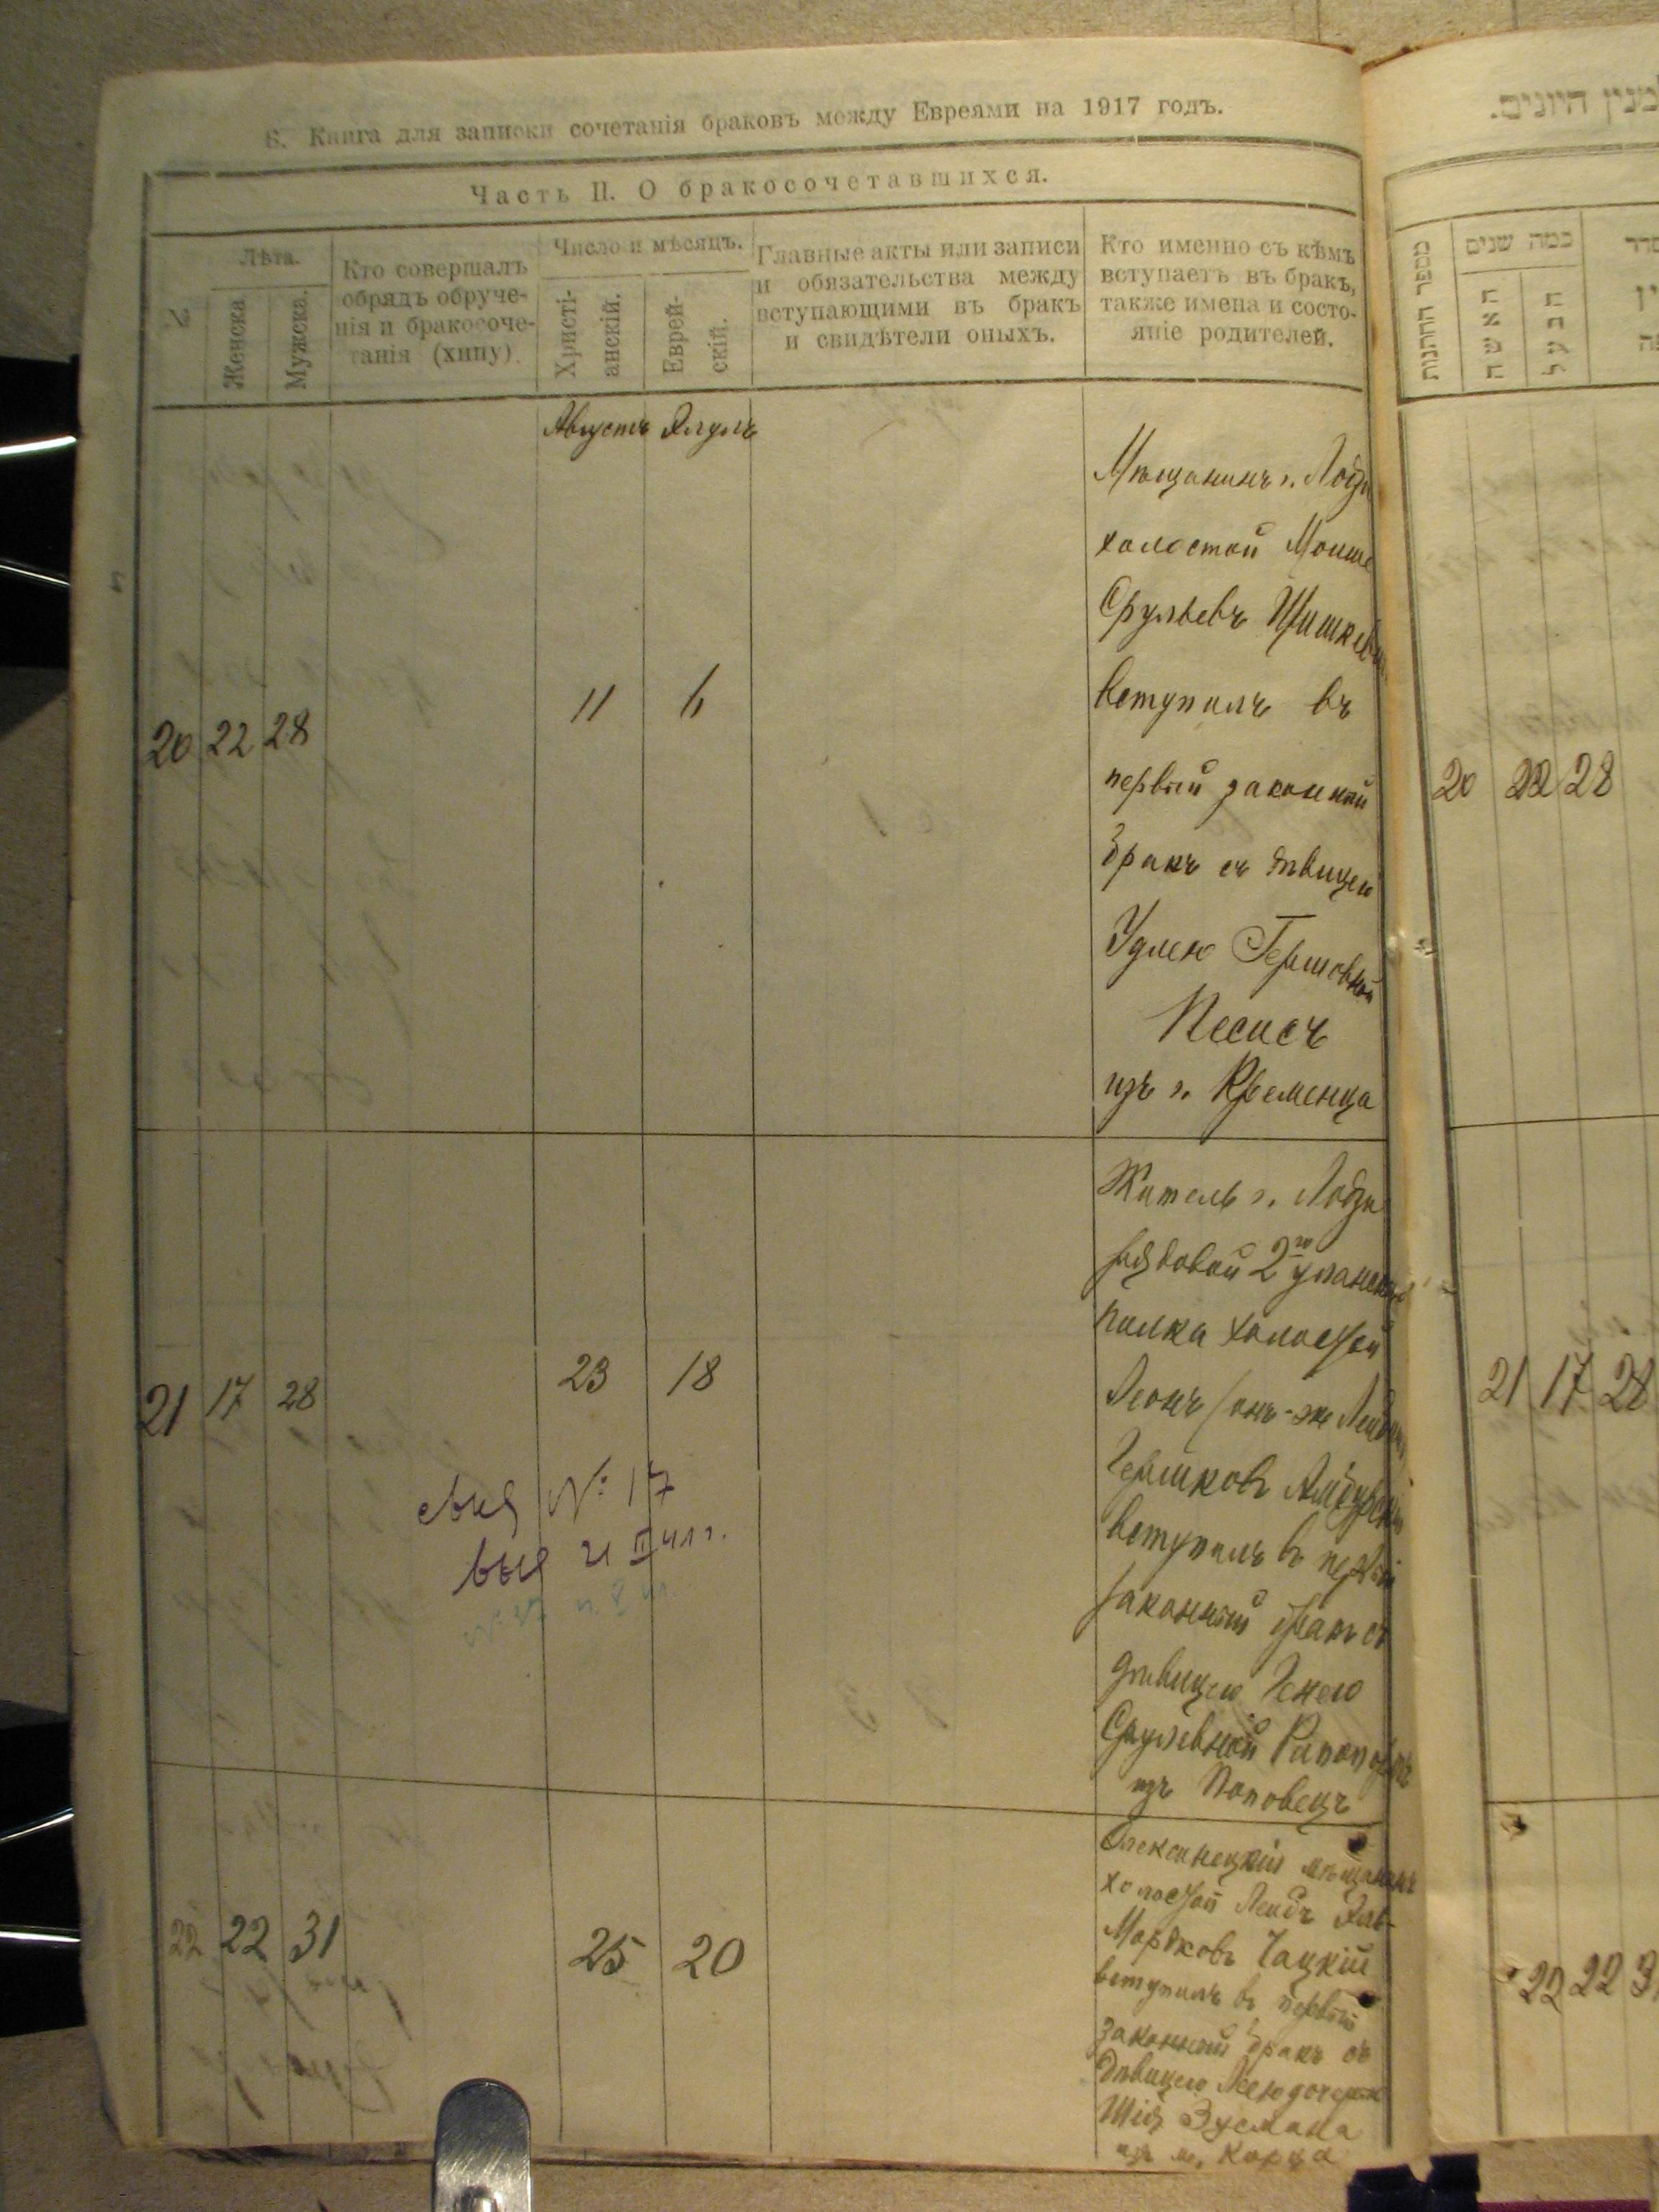 6. Книга для записки сочетанія браковъ между Евреями на 1917 годъ.
Часть II. О бракосочетавшихся.
Лѣта.
Женска.
Мужеска.
Кто совершалъ
обрядъ обруче-
нія и бракосоче-
танія (хипу)
Число и мѣсяцъ.
Христі-
анскій.
Еврей-
скій.
Главные акты или записи
и обязательства между
вступающими въ бракъ
и свидѣтели оныхъ.
Кто именно съ кѣмъ
вступаетъ въ бракъ,
также имена и состо-
яніе родителей.
Августъ Элулъ
20 22 28
11 6
Мѣщанинъ г. Лодзи
холостой Мошне
Срульевъ
вступилъ въ
первый законный
бракъ съ дѣвицею
Удлею Гершовной
Песисъ
изъ г. Кременца
21 17 28
23 18
№ 17
Житель г. Лодзи
рядовой 2го уланскаго
полка холостой
Леонъ (онъ-же
Гершковъ
вступилъ въ первый
законный бракъ съ
дѣвицею Генею
Срулевной Рапопортъ
изъ Поповецъ
22 22 31
25 20
Олексинецкій мѣщанинъ
холостой Лейбъ Эль-
Мордковъ Чацкій
вступилъ въ первый
законный бракъ съ
дѣвицею
Шіи Зусмана
изъ м. Корца
למנין היונים.
מספר החתנות
כמה שנים
האשה
הבעל
20 22 28
21 17 28
22 22 3